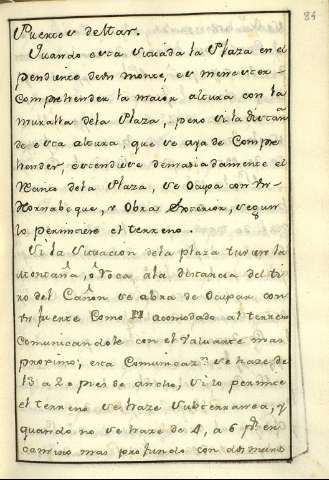 84
Puertos de Mar.
Quando esta situada la Plaza en el
pendiente de un monte, es menester
Comprehender la maior altura con la
muralla dela Plaza, pero si la distan
de esta altura, que se aja de Compre
hender, estendiese demasiadamente el
flanco dela Plaza, se Ocupa con Un
Hornabeque, u Obra Exterior, segun
lo permitiere el terreno.
Si la Situacion dela plaza tuviere la
Montaña, o Roca ala distancia del ti
ro del Cañon se abra de Ocupar con
Un fuerte Como acomodado al terreno
Comunicandole con el Valuarte mas
propinco; esta Comunicaz.n se haze de
13 a 20 pies de ancho, si lo permite
el terreno se haze Subterranea, y
quando no se haze de 4, a 6 p.s en
camino mas profundo con dos muros